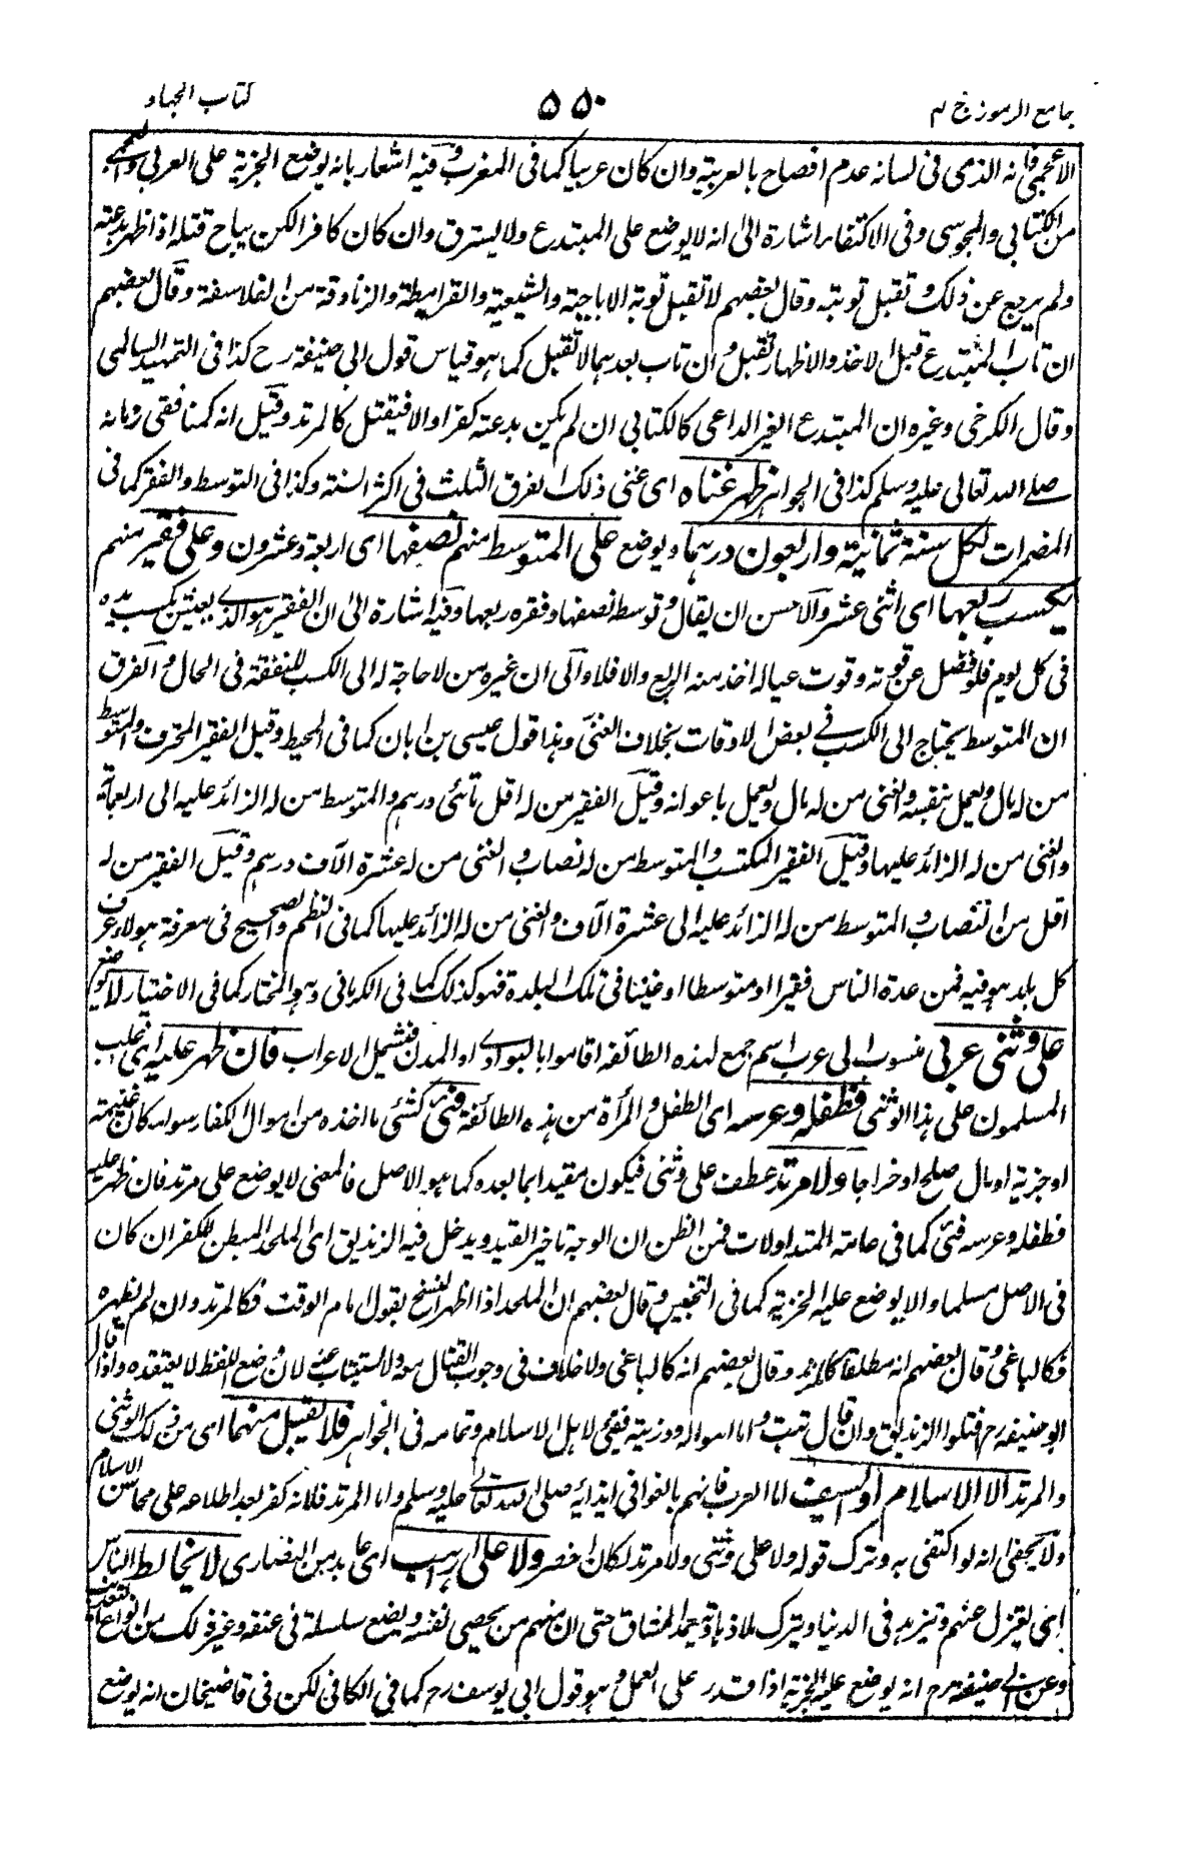 جامع الرموز ج ٢
٥٥٠
كتاب الجهاد
الاعجمي فانه الذى فى لسانه عدم افصاح بالعربية وان كان عربيا كما فى المغرب وفيه اشعار بانه يوضع الجزية على العربى والعجمى
من الكتابى والمجوسى وفى الاكتفاء اشارة الى انه لا يوضع على المبتدع ولا يسترق وان كان كافرا لكن يباح قتله اذا ظهر بدعته
ولم يرجع عن ذلك وتقبل توبته وقال بعضهم لا تقبل توبة الاباحية والشيعية والقرامطة والزنادقة من الفلاسفة وقال بعضهم
ان تاب المبتدع قبل الاخذ والاظهار تقبل وان تاب بعدهما لا تقبل كما هو قياس قول ابى حنيفة رح كذا فى التمهيد السالمى
وقال الكرخى وغيره ان المبتدع الغير الداعى كالكتابى ان لم يكن بدعته كفرا والا فيقتل كالمرتد وقيل انه كمنافقى زمانه
صلے الله تعالى عليه وسلم كذا فى الجواهر ظهر غناه اى غنى ذلك الفرق الثلث فى اكثر السنة وكذا فى التوسط والفقر كما فى
المضمرات لكل سنة ثمانية واربعون درهما ويوضع على المتوسط منهم نصفها اى اربعة وعشرون وعلى فقير منهم
يكسب ربعها اى اثنى عشر والاحسن ان يقال وتوسط نصفها وفقره ربعها وفيه اشارة الى ان الفقير هو الذى يعيش بكسب يده
فى كل يوم فلو فضل عن قوته وقوت عياله اخذ منه الربع والا فلا والى ان غيره من لا حاجة له الى الكسب للنفقة فى الحال والفرق
ان المتوسط يحتاج الى الكسب فى بعض الاوقات بخلاف الغنى وهذا قول عيسى بن ابان كما فى المحيط وقيل الفقير المحترف والمتوسط
من له مال ويعمل بنفسه والغنى من له مال ويعمل باعوانه وقيل الفقير من له اقل مائتى درهم والمتوسط من له الزائد عليه الى اربعمائة
والغنى من له الزائد عليها وقيل الفقير المكتسب والمتوسط من له نصاب والغنى من له عشرة الآف درهم وقيل الفقير من له
اقل من النصاب والمتوسط من له الزائد عليه الى عشرة الآف والغنى من له الزائد عليها كما فى النظم والصحيح فى معرفة هولاء عرف
كل بلد هو فيه فمن عده الناس فقيرا او متوسطا او غنيا فى تلك البلدة فهو كذلك كما فى الكرمانى وهو المختار كما فى الاختيار لا يوضع
على وثنى عربى منسوب الى عرب اسم جمع لهذه الطائفة اقاموا بالبوادى او المدن فيشمل الاعراب فان ظهر عليه اى غلب
المسلمون على هذا الوثنى فطفله وعرسه اى الطفل والمرأة من هذه الطائفة فئ كشئى ما اخذه من اموال الكفار سواء كان غنيمة
او جزية او مال صلح او خراجا ولا مرتد عطف على وثنى فيكون مقيدا بما بعده كما هو الاصل فالمعنى لا يوضع على مرتد فان ظهر عليه
فطفله وعرسه فئى كما فى عامة المتداولات فمن الظن ان الوجه تاخير القيد ويدخل فيه الزنديق اى الملحد المبطن للكفر ان كان
فى الاصل مسلما والا يوضع عليه الجزية كما فى التجنيس وقال بعضهم ان الملحد اذا اظهر النسخ بقول امام الوقت فكالمرتد وان لم يظهره
فكالباغى وقال بعضهم انه مطلقا كالمرتد وقال بعضهم انه كالباغى ولا خلاف فى وجوب القتال معه ولا يستتاب عنه لانه وضع اللفظ لا يعتقده واذا قال
ابو حنيفة رح اقتلوا الزنديق وان قال تبت واما امواله وذريته ففئ لاهل الاسلام وتمامه فى الجواهر فلا يقبل منهما اى من ذلك الوثنى
والمرتد الا الاسلام او السيف اما العرب فانهم بالغوا فى ايذائه صلى الله تعالى عليه وسلم واما المرتد فلانه كفر بعد اطلاعه على محاسن الاسلام
ولا يخفى انه لو اكتفى به وترك قوله ولا على وثنى ولا مرتد لكان اخصر ولا على راهب اى عابد من النصارى لا يخالط الناس
اى يعتزل عنهم وتزهد فى الدنيا ويترك ملاذها ويتحمل المشاق حتى ان منهم من يخصى نفسه ويضع سلسلة فى عنقه وغير ذلك من انواع التعذيب
وعن ابى حنيفة رح انه يوضع عليه الجزية اذا قدر على العمل وهو قول ابى يوسف رح كما فى الكافى لكن فى قاضيخان انه يوضع